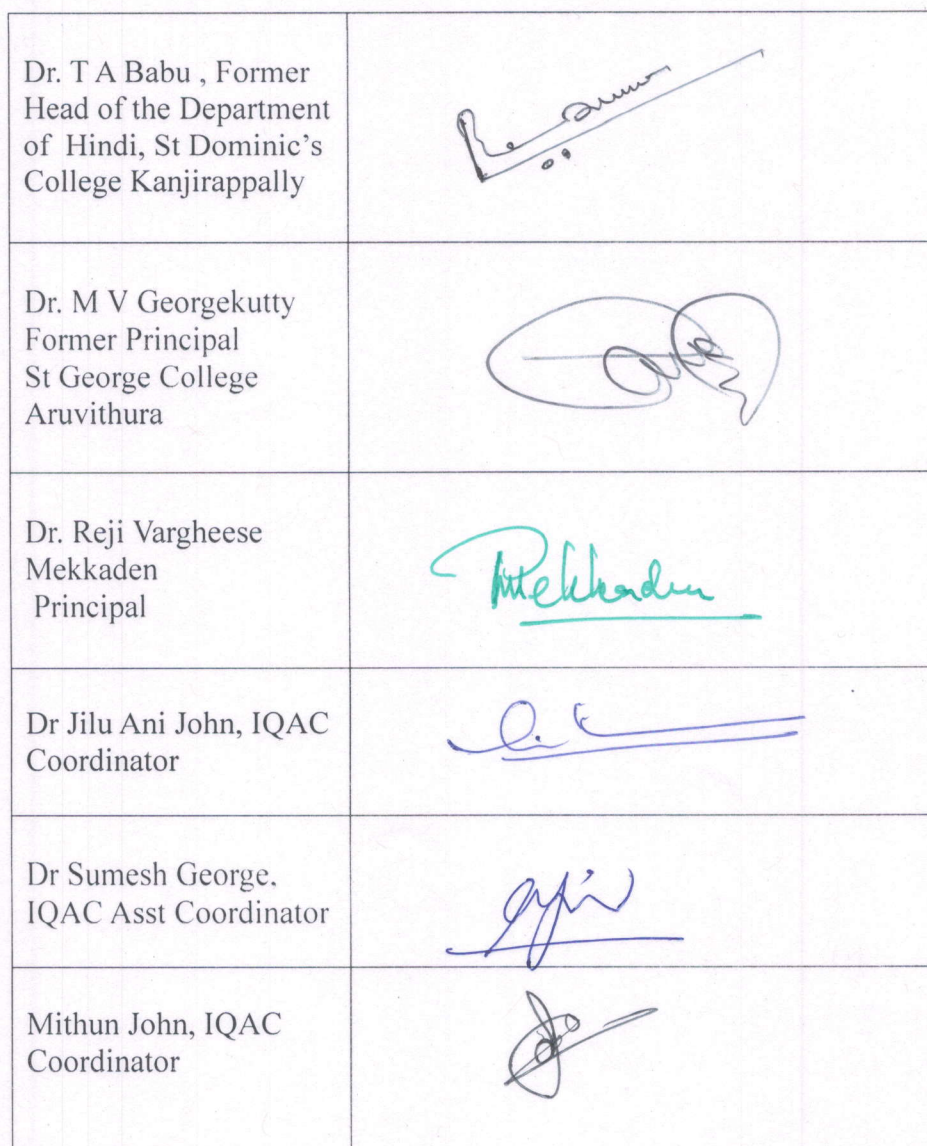 Dr. T A Babu , Former
Head of the Department
of Hindi, St Dominic's
College Kanjirappally
Dr. M V Georgekutty
Former Principal
St George College
Aruvithura
Dr. Reji Vargheese
Mekkaden
Principal
Mekkaden
Dr Jilu Ani John, IQAC
Coordinator
Dr Sumesh George,
IQAC Asst Coordinator
Mithun John, IQAC
Coordinator